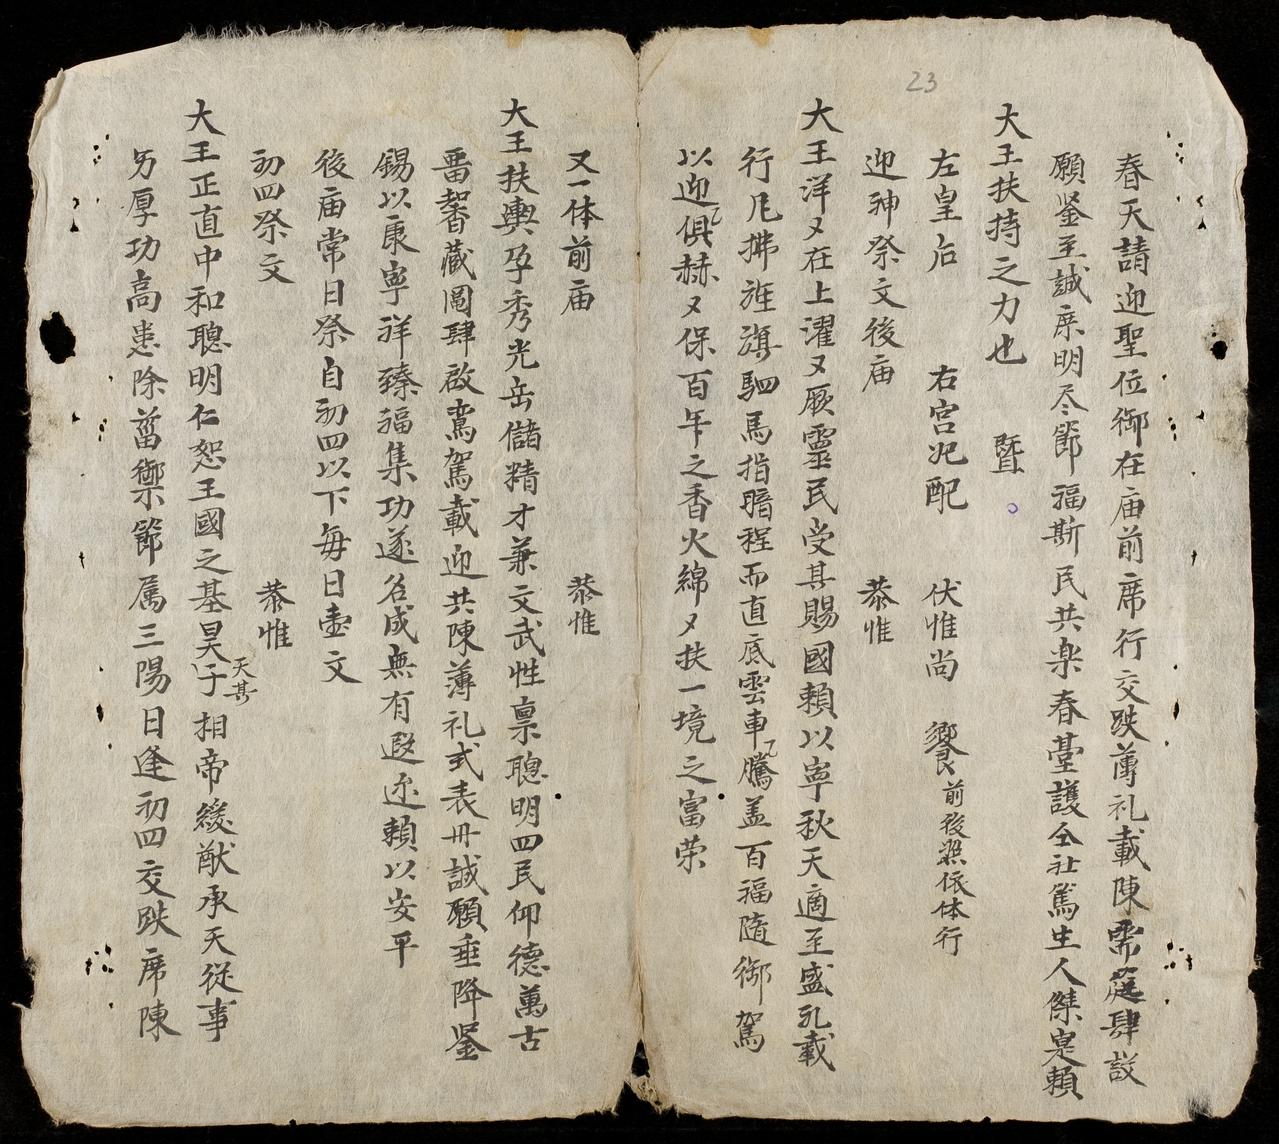 23
春天請迎聖位御在庙前席行交跌薄礼載陳霈莚肆設
願鉴至誠庶明尽節福斯民共楽春臺護仝社篤生人傑寔賴
大王扶持之力也 暨
左皇后 右宫妃配 伏惟尚 饗 前後照依体行
迎神祭文後庙 恭惟
大王洋〻在上濯〻厥靈民受其賜國賴以寧秋天適至盛礼載
行凡拂旌旗駟馬指暗程而直底雲車騰盖百福隨御駕
以迎俱赫〻保百年之香火綿〻扶一境之富荣
又一体前庙 恭惟
大王扶輿孕秀光岳儲精才兼文武性禀聰明四民仰德萬古
畱馨藏圖肆啟鸞駕載迎共陳薄礼式表冊誠願垂降鉴
錫以康寧祥臻福集功遂名成無有遐迩賴以安平
後庙常日祭自初四以下每日壹文
初四祭文 恭惟
大王正直中和聰明仁恕王國之基昊 天其 相帝緩猷承天従事
另厚功高患除菑禦節属三陽日逢初四交跌席陳